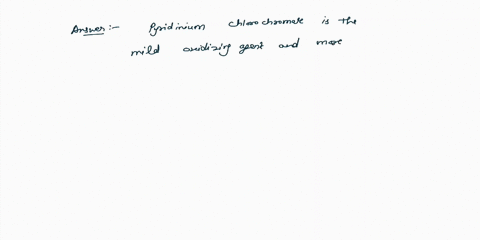 Answer:- Pyridinium chlorochromate is the
mild oxidizing agent and more